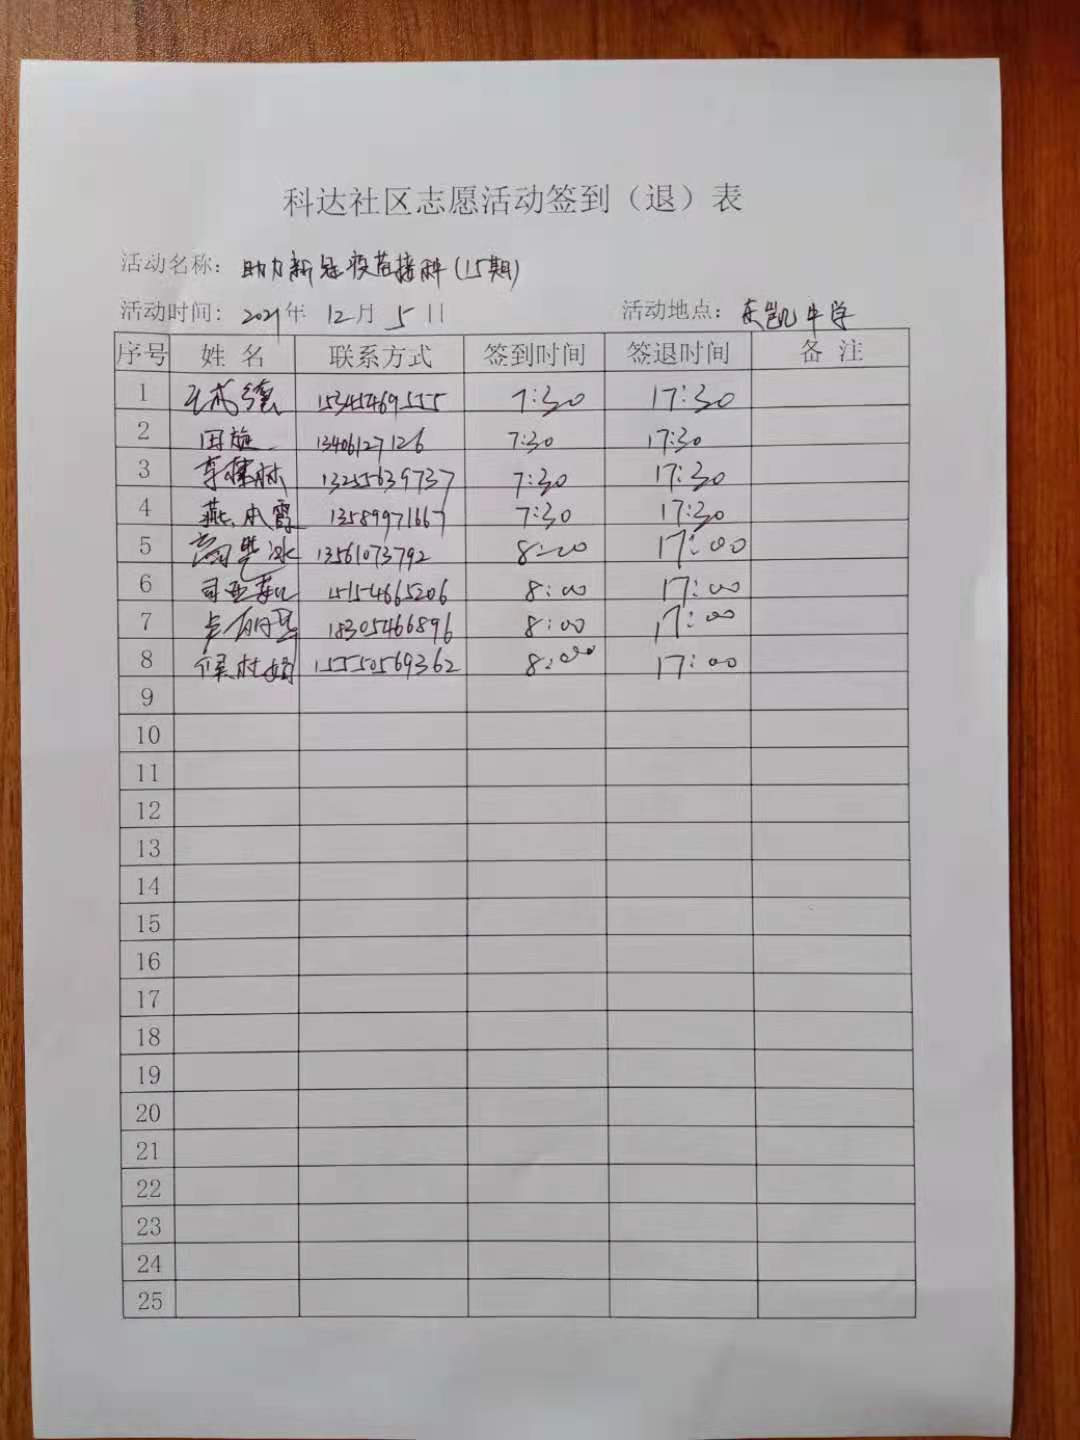 科达社区志愿活动签到（退）表
活动名称： 助力新冠疫苗接种(15期)
活动时间： 2021年 12月 5日 活动地点：东凯中学
序号 姓 名 联系方式 签到时间 签退时间 备 注
1 15345469555 7:30 17:30
2 田旋 13406127126 7:30 17:30
3 13255639737 7:30 17:30
4 燕 霞 13589971667 7:30 17:30
5 冰 13561073792 17:00
6 司亚 15154665206 8:00 17:00
7 18305466896 8:00 17:00
8 15550569362 8:00 17:00
9
10
11
12
13
14
15
16
17
18
19
20
21
22
23
24
25